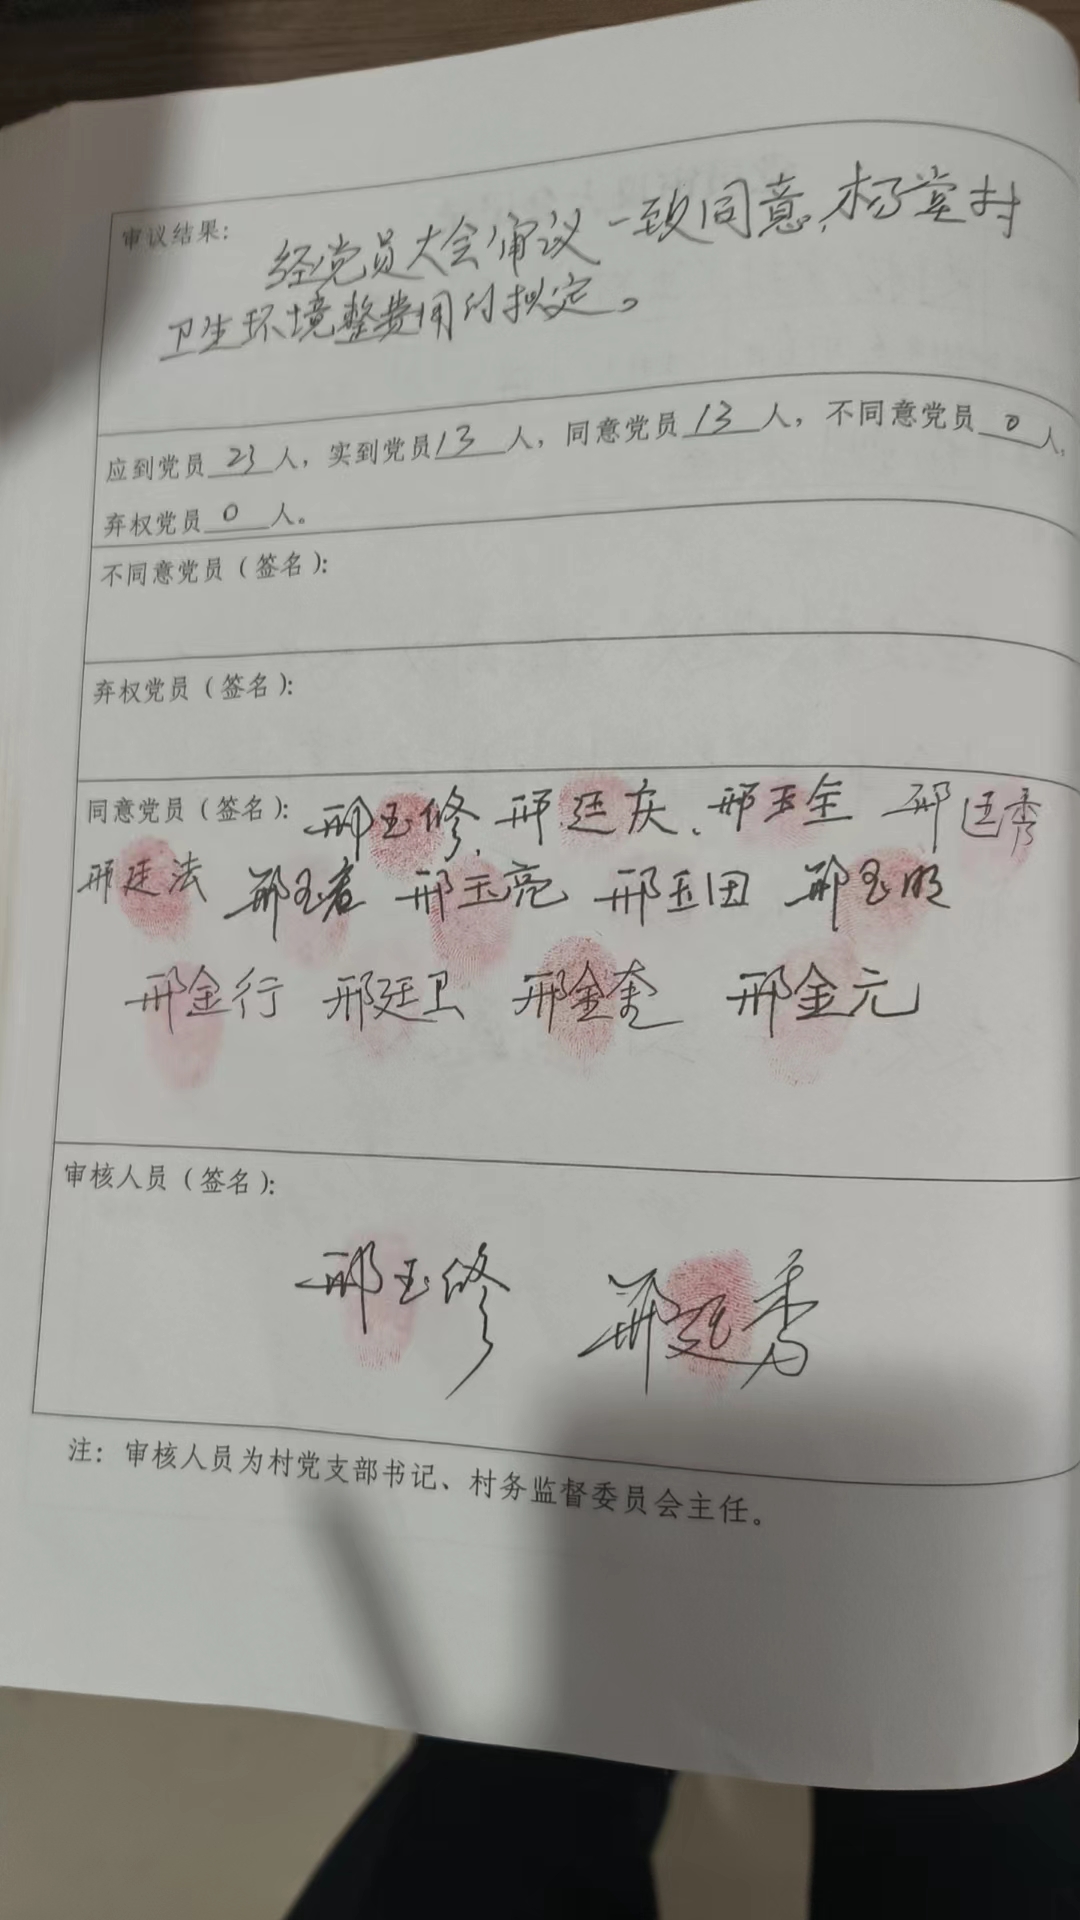 审议结果：
经党员大会审议一致同意，杨堂村
卫生环境整费用的拟定。
应到党员 23 人，实到党员 13 人，同意党员 13 人，不同意党员 0 人，
弃权党员 0 人。
不同意党员（签名）：
弃权党员（签名）：
同意党员（签名）： 邢玉修、邢廷庆、邢玉金 邢廷秀
邢廷法 邢玉君 邢玉亮 邢玉田 邢玉明
邢金行 邢廷卫 邢金奎 邢金元
审核人员（签名）：
邢玉修 邢廷秀
注：审核人员为村党支部书记、村务监督委员会主任。